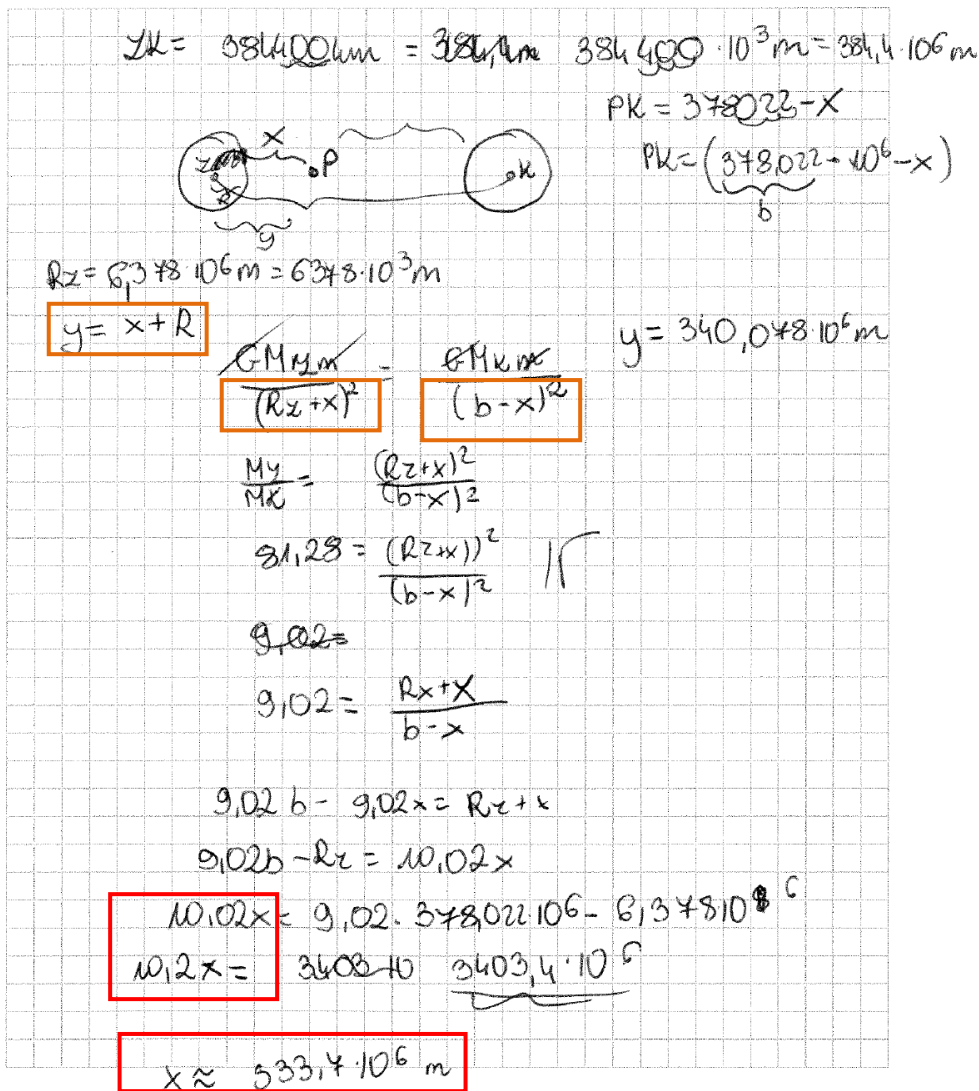 ZK = 384400km = 384,4m 384 400 · 10³ m = 384,4 · 10⁶ m
PK = 378022 - X
PK = (378,022 · 10⁶ - x)
b
X
Z P K
R
y
Rz = 6,378 · 10⁶ m = 6378 · 10³ m
y = x + R
y = 340,078 · 10⁶ m
GMzm/(Rz+x)² = GMkm/(b-x)²
Mz/MK = (Rz+x)²/(b-x)²
81,28 = (Rz+x))²/(b-x)² |√
9,02=
9,02 = Rx+X/b-x
9,02 b - 9,02x = Rz + x
9,02b - Rz = 10,02x
10,02x = 9,02 · 378,022 · 10⁶ - 6,378 10⁶
10,2x = 3403 10 3403,4 · 10⁶
x ≈ 333,7 · 10⁶ m